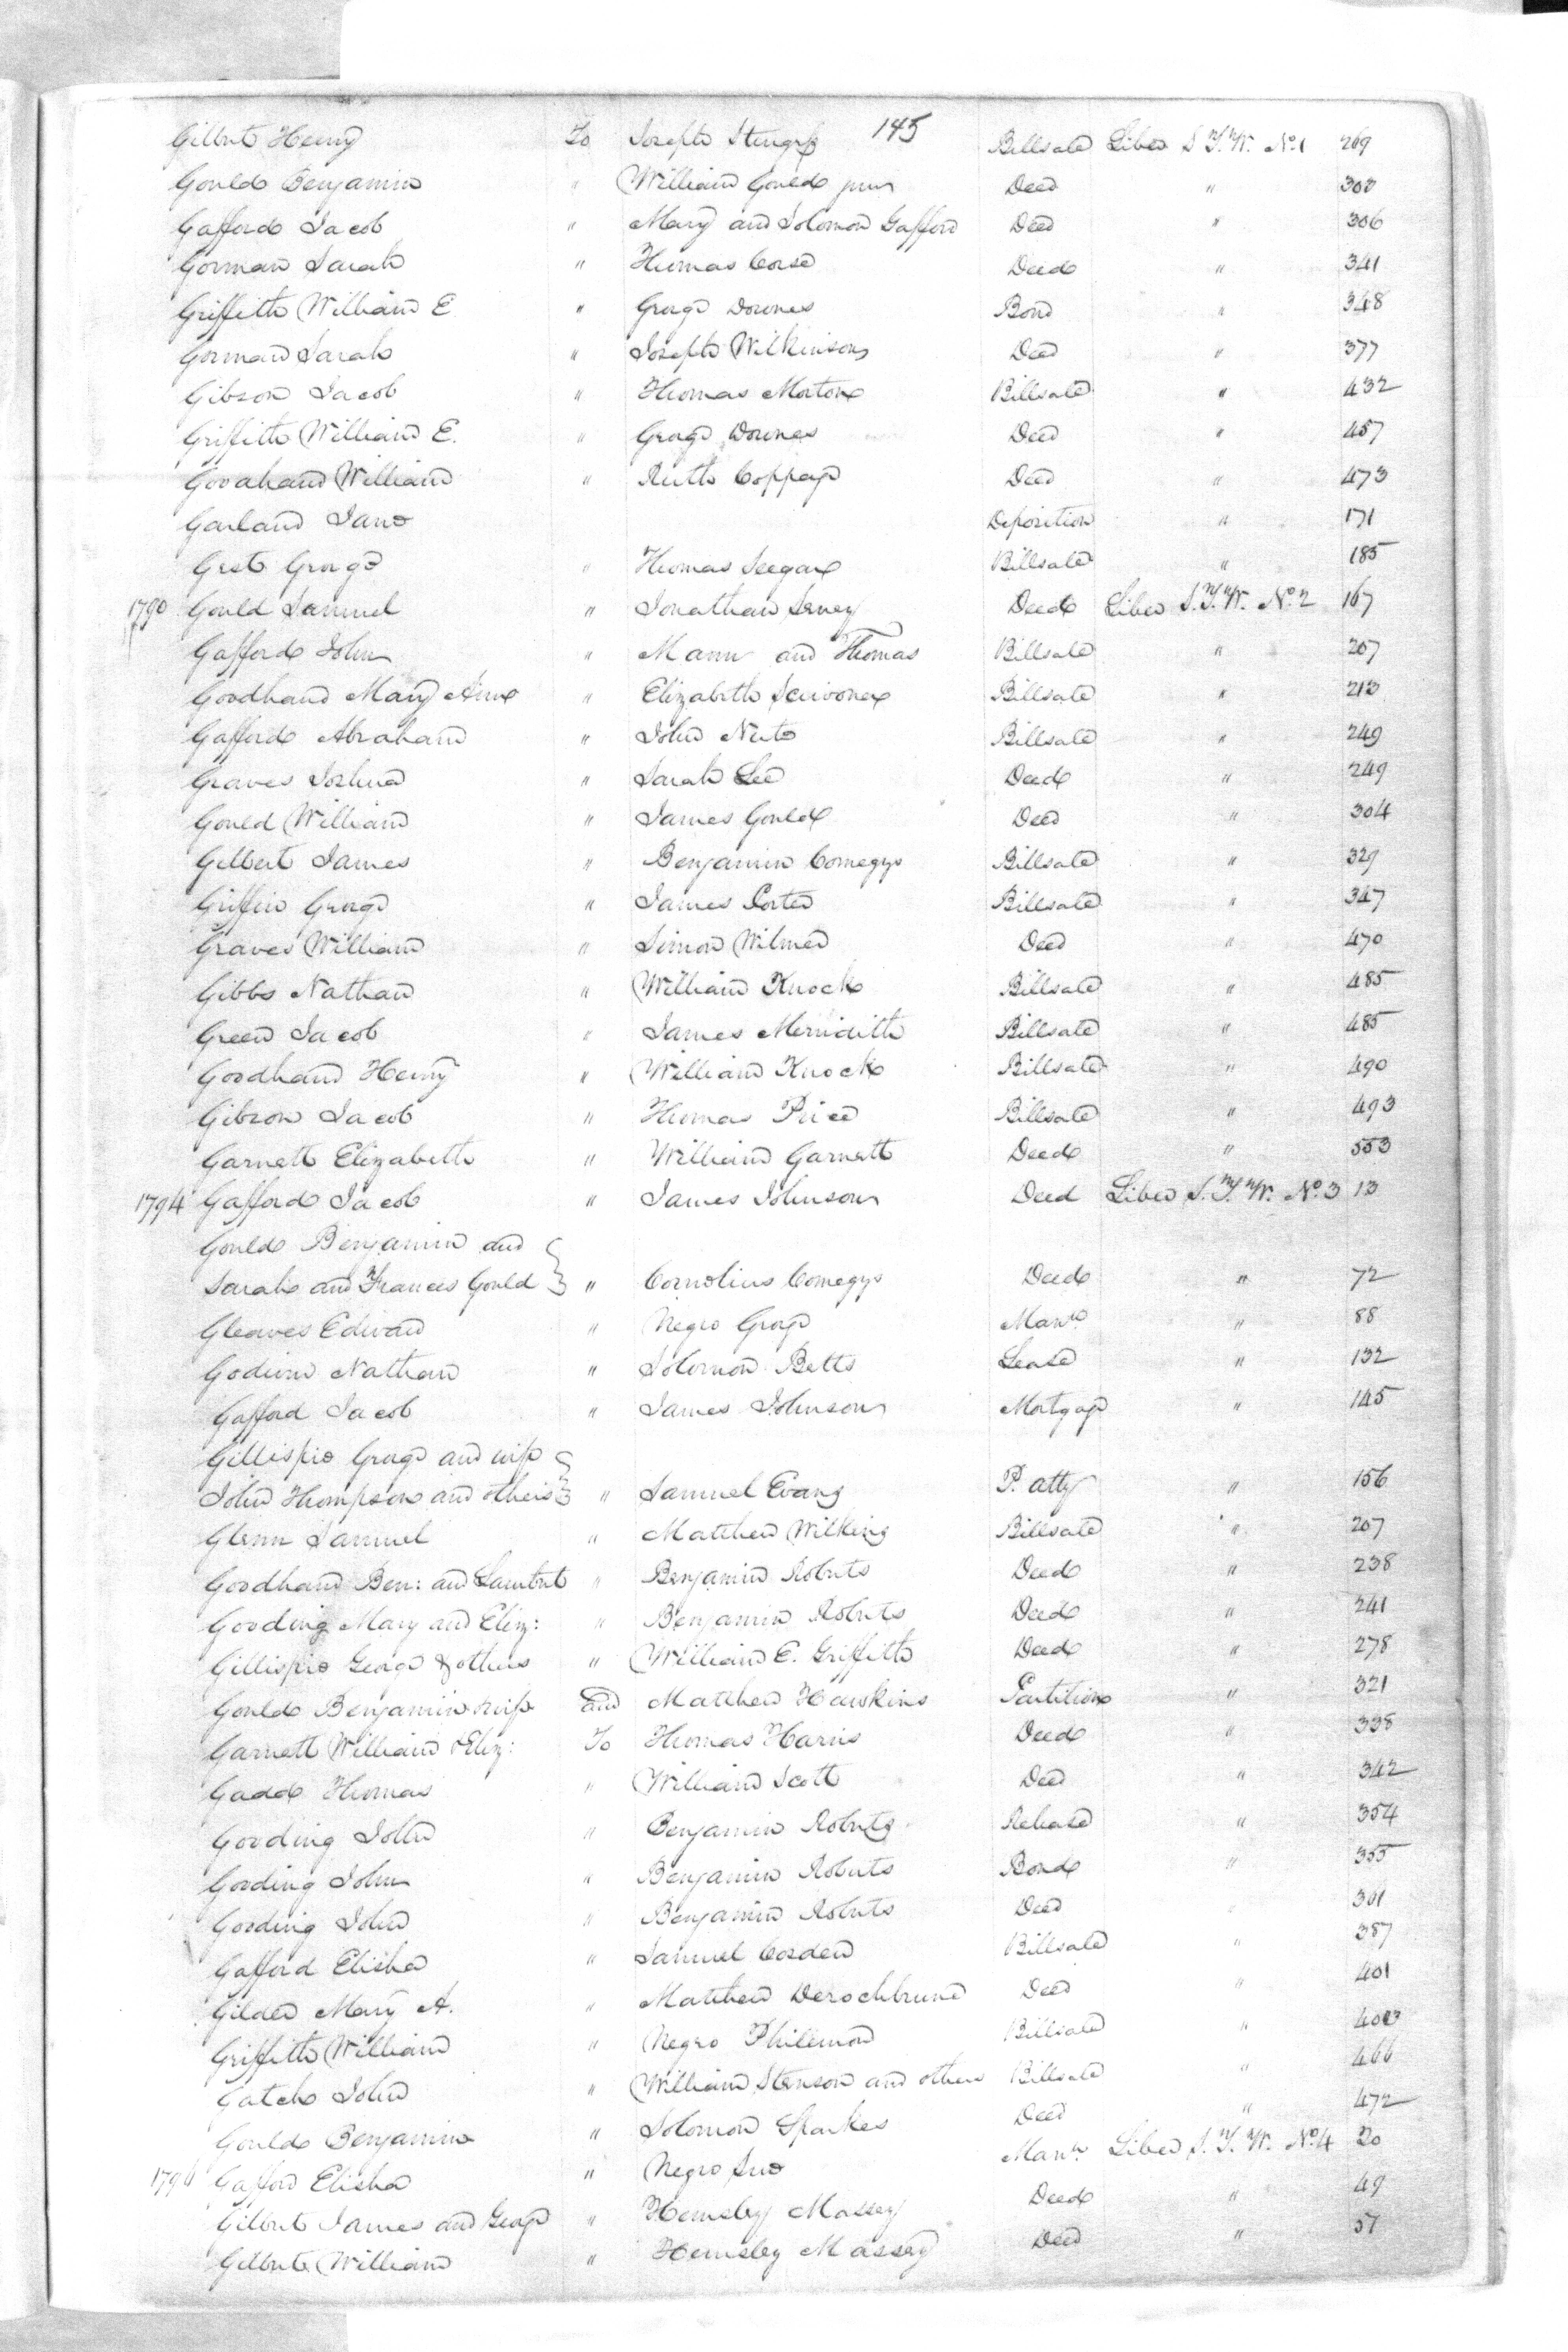 145
Gilbert Henry To Joseph Billsale Liber S.T.W. No. 1 269
Gould Benjamin " William Gould junr Deed " 303
Gafford Jacob " Mary and Solomon Gafford Deed " 306
Gorman Sarah " Thomas Corse Deed " 341
Griffith William E " George Downes Bond " 348
Gorman Sarah " Joseph Wilkinson Deed " 377
Gibson Jacob " Thomas Morton Billsale " 432
Griffith William E. " George Downes Deed " 457
William " Ruth Coppage Deed " 473
Garland Jane Deposition " 171
Gest George " Thomas Seegar Billsale " 185
1790 Gould Samuel " Jonathan Deed Liber S.T.W. No. 2 167
Gafford John " Mann and Thomas Billsale " 207
Goodhand Mary Ann " Elizabeth Scrivoner Billsale " 213
Gafford Abraham " John Billsale " 249
Graves Joshua " Sarah Lee Deed " 249
Gould William " James Gould Deed " 304
Gilbert James " Benjamin Comegys Billsale " 329
Griffin George " James Porter Billsale " 347
Graves William " Simon Wilmer Deed " 470
Gibbs Nathan " William Knock Billsale " 485
Green Jacob " James Merridith Billsale " 485
Goodhand Henry " William Knock Billsale " 490
Gibson Jacob " Thomas Price Billsale " 493
Garnett Elizabeth " William Garnett Deed " 553
1794 Gafford Jacob " James Johnson Deed Liber S.T.W. No. 3 13
Gould Benjamin and
Sarah and Frances Gould " Cornelius Comegys Deed " 72
Gleaves Edward " Negro George Mann. " 88
Godwin Nathan " Solomon Betts Lease " 132
Gafford Jacob " James Johnson Mortgage " 145
Gillispie George and wife
John Thompson and others " Samuel Evans P. atty " 156
Glenn Samuel " Matthew Wilkins Billsale " 207
Goodhand Ben: and Lambert " Benjamin Roberts Deed " 238
Gooding Mary and Eliz: " Benjamin Roberts Deed " 241
Gillispie George & others " William E. Griffith Deed " 278
Gould Benjamin & wife and Matthew Hawkins Partition " 321
Garnett William & Eliz: To Thomas Harris Deed " 338
Gadd Thomas " William Scott Deed " 342
Gooding John " Benjamin Roberts Release " 354
Gooding John " Benjamin Roberts Bond " 355
Gooding John " Benjamin Roberts Deed " 301
Gafford Elisha " Samuel Cosden Billsale " 387
Gilder Mary A. " Matthew Derochbrune Deed " 401
Griffith William " Negro Philemon Billsale " 403
Gatch John " William Stenson and others Billsale " 466
Gould Benjamin " Solomon Sparkes Deed " 472
1796 Gafford Elisha " Negro Sue Mann. Liber S.T.W. No. 4 20
Gilbert James and George " Hemsley Massey Deed " 49
Gilbert William " Hemsley Massey Deed " 51